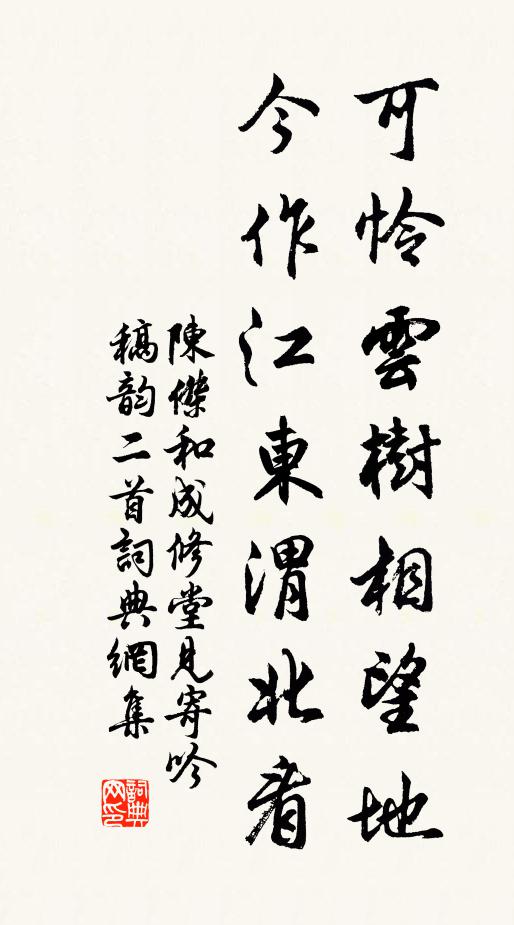 可怜雲樹相望地
今作江東渭北看
陳傑和成修堂見寄吟
稿韵二首詞典網集
詞典
网印